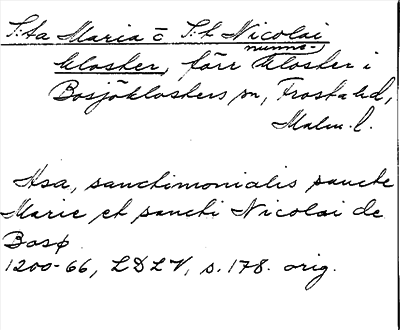 S:ta Maria o S:t Nicolai
nunne-
kloster, förr kloster i
Bosjöklosters sn, Frosta hd,
Malm. l.
Asa, sanctimonialis sancte
Marie et sancti Nicolai de
Bosø
1200-66, LDLV, s. 178. orig.